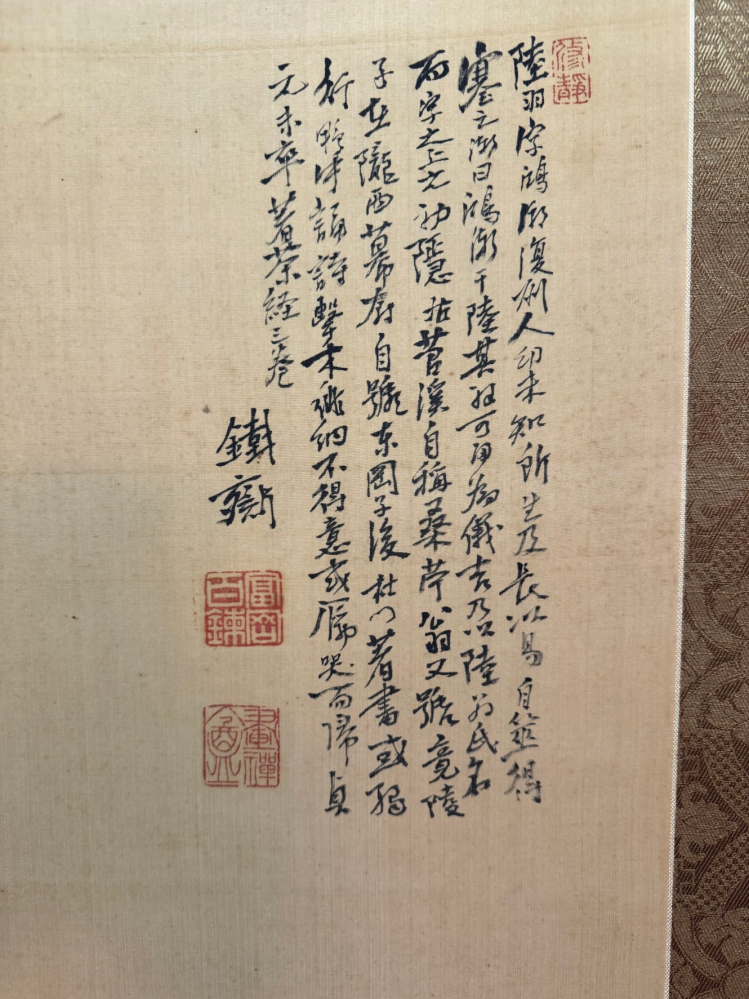 陸羽字鴻漸復州人初未知所生及長以易自筮得
蹇之漸曰鴻漸于陸其羽可用為儀吉乃以陸為氏名
而字之上元初隱於苕溪自稱桑苧翁又號竟陵
子在隴西幕府自號東岡子後杜門著書或獨
行野中誦詩擊木徘徊不得意或慟哭而歸貞
元末卒著茶経三卷
鐵齋
富岡
百錬
畫禪